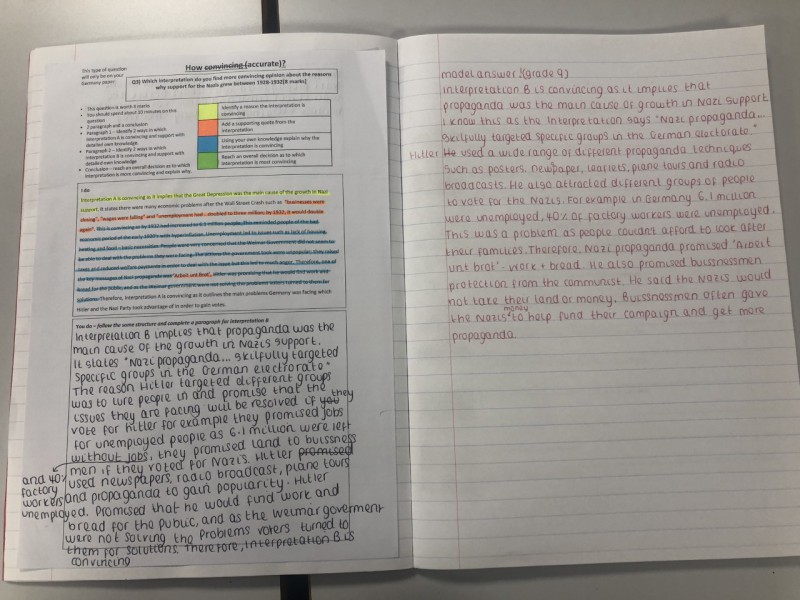 This type of question
will only be on your
Germany paper.
How convincing (accurate)?
Q3) Which interpretation do you find more convincing opinion about the reasons
why support for the Nazis grew between 1928-1932[8 marks]
This question is worth 8 marks
You should spend about 10 minutes on this
question
2 paragraph and a conclusion
Paragraph 1 – Identify 2 ways in which
interpretation A is convincing and support with
detailed own knowledge.
Paragraph 2 – Identify 2 ways in which
interpretation B is convincing and support with
detailed own knowledge
Conclusion – reach an overall decision as to which
interpretation is more convincing and explain why.
Identify a reason the interpretation is
convincing
Add a supporting quote from the
interpretation
Using your own knowledge explain why the
interpretation is convincing
Reach an overall decision as to which
interpretation is most convincing
I do
Interpretation A is convincing as it implies that the Great Depression was the main cause of the growth in Nazi
support. It states there were many economic problems after the Wall Street Crash such as "businesses were
closing", "wages were falling" and "unemployment had … doubled to three million; by 1932, it would double
again". This is convincing as by 1932
Therefore, Interpretation A is convincing as it outlines the main problems Germany was facing which
Hitler and the Nazi Party took advantage of in order to gain votes.
You do – follow the same structure and complete a paragraph for interpretation B
Interpretation B implies that propaganda was the
main cause of the growth in Nazis support.
It states "Nazi propaganda... skilfully targeted
specific groups in the German electorate"
The reason Hitler targeted different groups
was to lure people in and promise that the
issues they are facing will be resolved if you they
vote for hitler for example they promised jobs
for unemployed people as 6.1 million were left
without jobs, they promised land to buissness
men if they voted for Nazis. Hitler promised
and 40% factory workers unemployed.
used newspapers, radio broadcast, plane tours
and propaganda to gain popularity. Hitler
Promised that he would find work and
bread for the public, and as the weimar goverment
were not solving the problems voters turned to
them for solutions. Therefore, interpretation B is
convincing
model answer: (grade 9)
Interpretation B is convincing as it implies that
propaganda was the main cause of growth in Nazi support
I know this as the Interpretation says "Nazi propaganda...
skilfully targeted specific groups in the German electorate."
Hitler He used a wide range of different propaganda techniques
such as posters, newspaper, leaflets, plane tours and radio
broadcasts. He also attracted different groups of people
to vote for the Nazis. For example in Germany 6.1 million
were unemployed, 40% of factory workers were unemployed.
This was a problem as people couldnt afford to look after
their families. Therefore, Nazi propaganda promised 'Arbeit
unt brot' - work + bread. He also promised buissnessmen
protection from the communist. He said the Nazis would
not take their land or money. Buissnessmen often gave
the Nazis money to help fund their campaign and get more
propaganda.